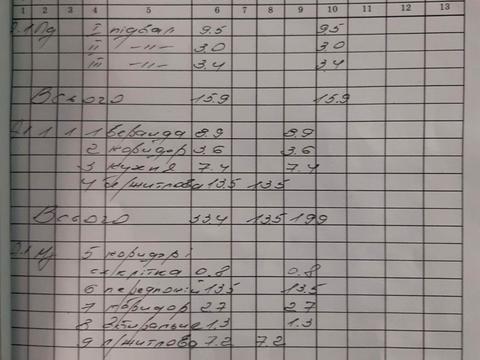 1 2 3 4 5 6 7 8 9 10 11 12 13
Пд I підвал 9.5 9.5
II -„- 3.0 3.0
III -„- 3.4 3.4
Всього 15.9 15.9
1 1 1 веранда 8.9 8.9
2 коридор 3.6 3.6
3 кухня 7.4 7.4
4 житлова 13.5 13.5
Всього 33.4 13.5 19.9
5 коридор і
сх. клітка 0.8 0.8
6 13.5 13.5
7 коридор 2.7 2.7
8 1.3 1.3
9 житлова 7.2 7.2